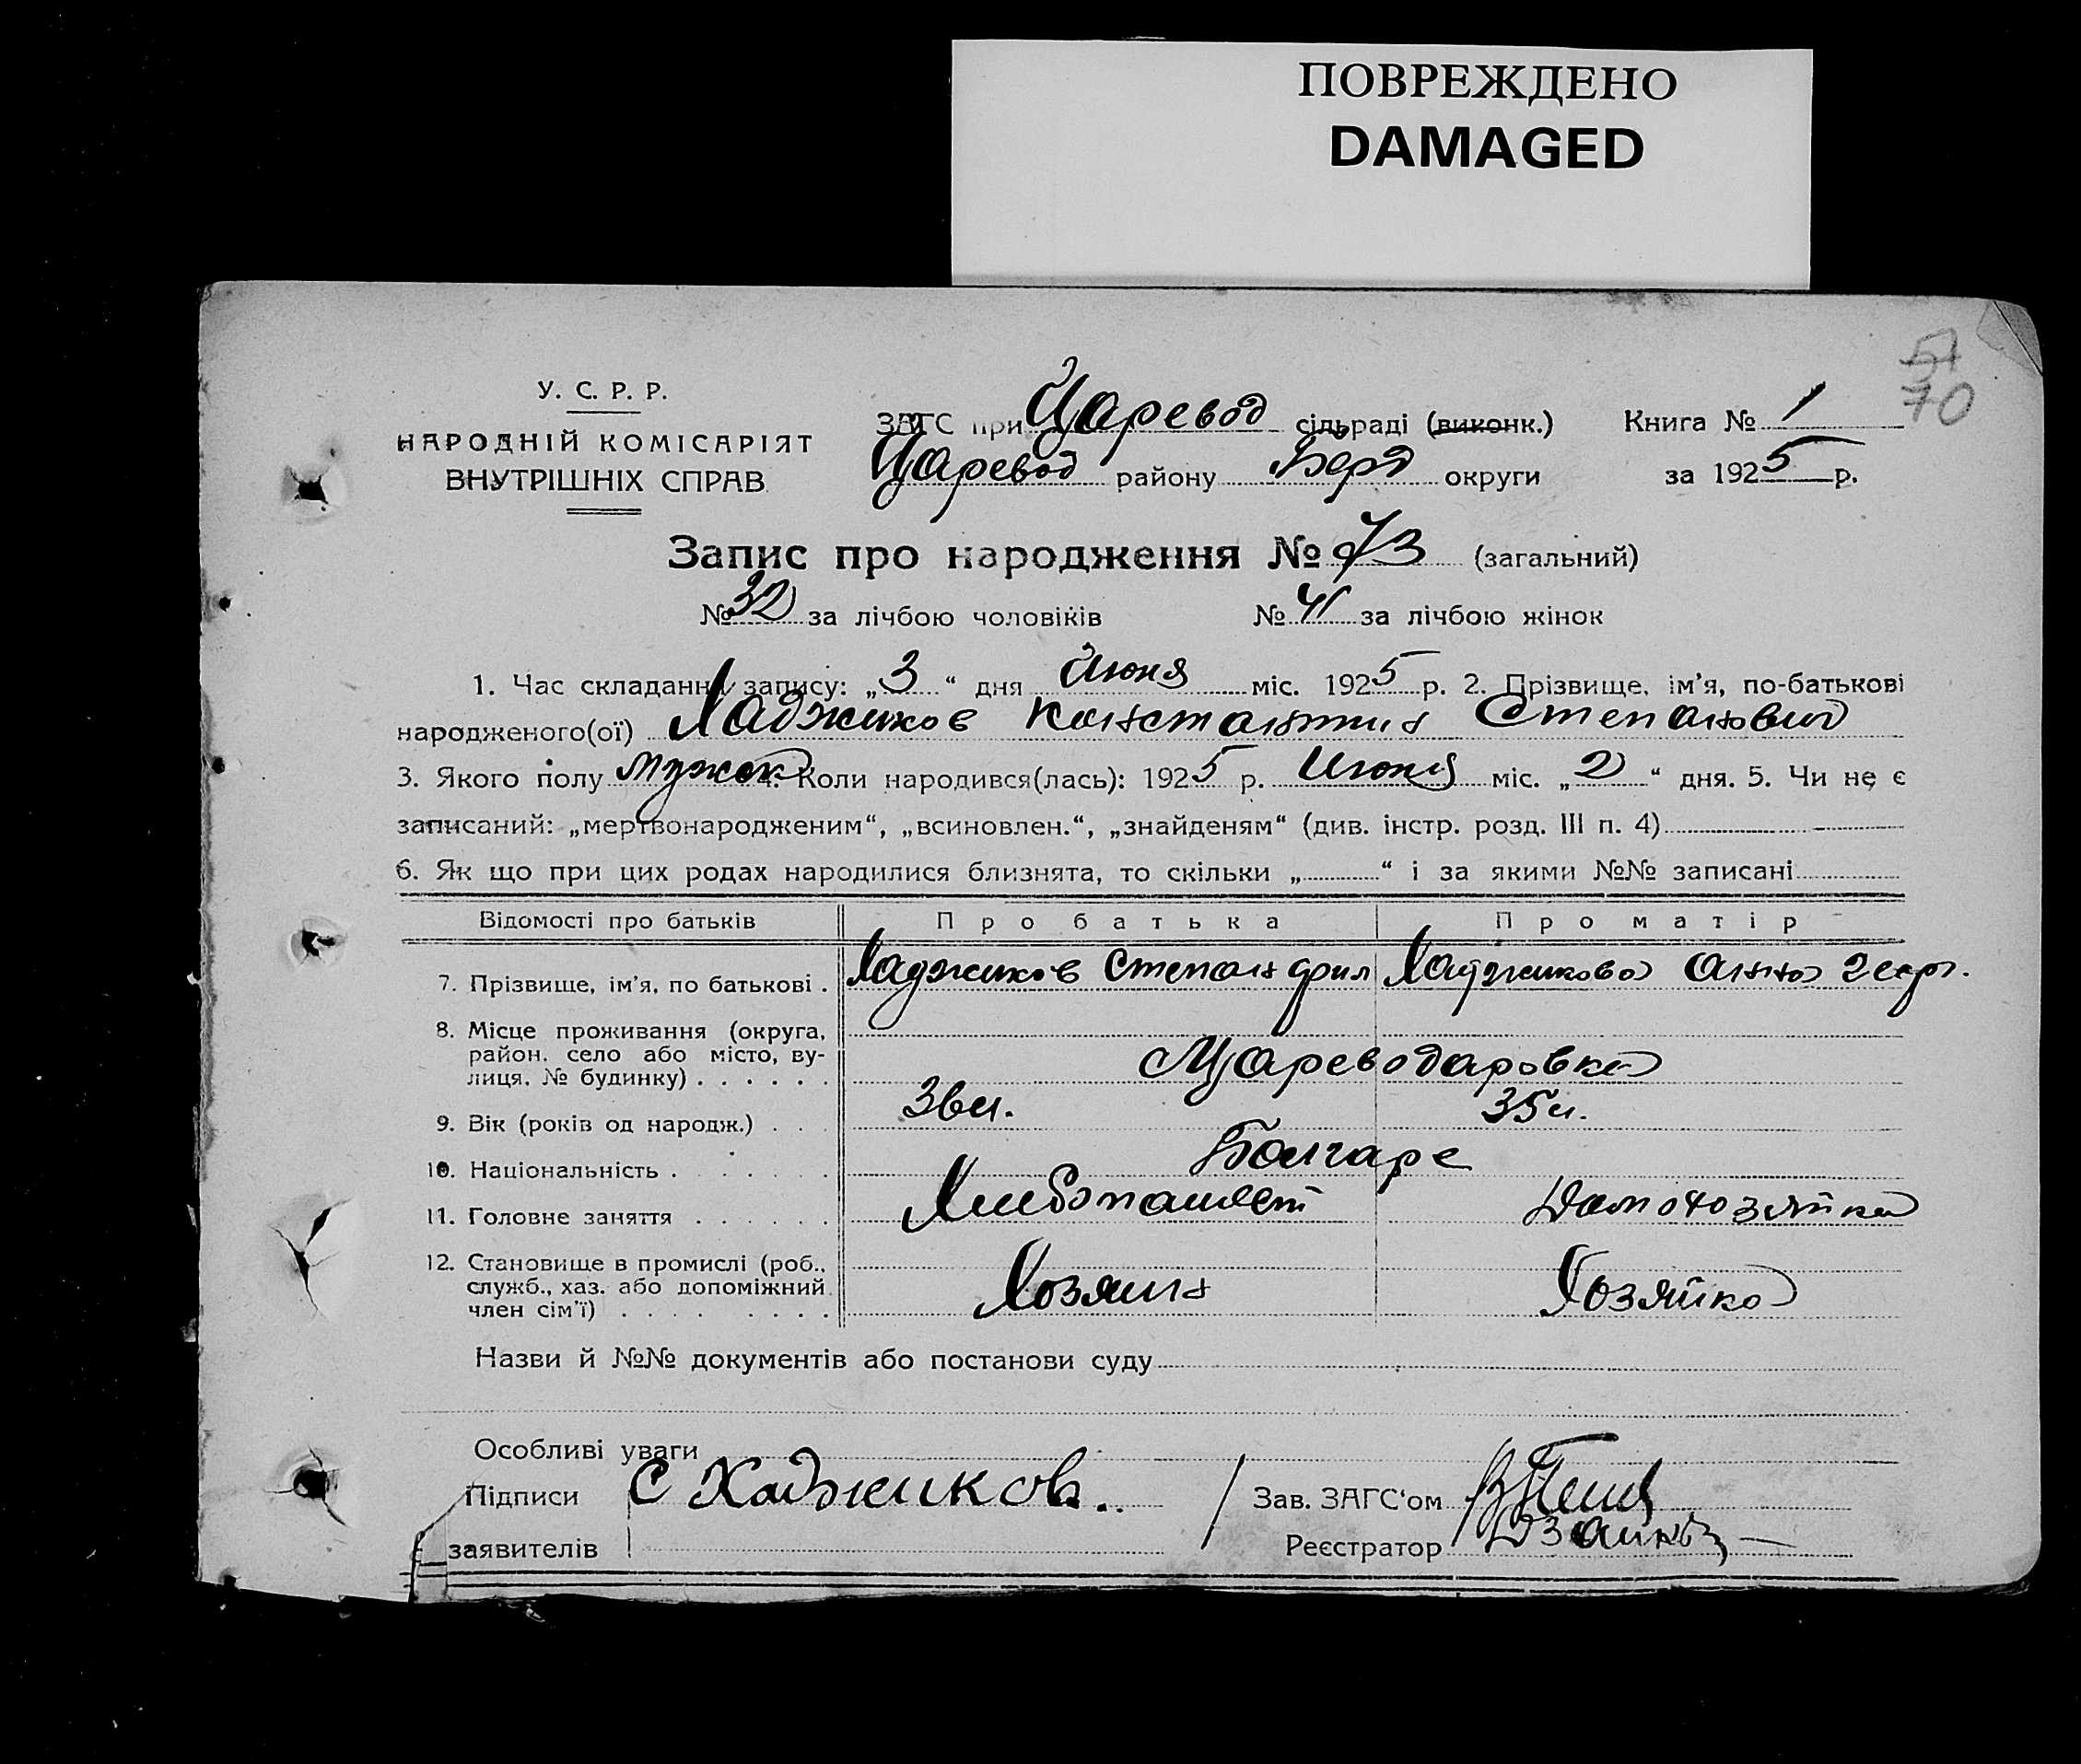 ПОВРЕЖДЕНО
DAMAGED
51
70
У. С. Р. Р.
НАРОДНІЙ КОМІСАРІЯТ
ВНУТРІШНІХ СПРАВ
ЗАГС при Царевод сільраді (виконк.) Книга № 1
Царевод району Берд округи за 1925 р.
Запис про народження № 73 (загальний)
№ 32 за лічбою чоловіків № 41 за лічбою жінок
1. Час складання запису: „3“ дня Июня міс. 1925 р. 2. Прізвище, ім’я, по-батькові
народженого(ої) Хаджиков Константин Степанович
3. Якого полу мужск 4. Коли народився(лась): 1925 р. Июня міс. „2“ дня. 5. Чи не є
записаний: „мертвонародженим“, „всиновлен.“, „знайденям“ (див. інстр. розд. III п. 4)
6. Як що при цих родах народилися близнята, то скільки „ “ і за якими №№ записані
Відомості про батьків Про батька Про матір
7. Прізвище, ім’я, по батькові . Хаджиков Степан Фил Хаджикова Анна Геор.
8. Місце проживання (округа,
район, село або місто, ву-
лиця, № будинку) . . . . . . Цареводаровка
9. Вік (років од народж.) . . . 36 л. 35 л.
10. Національність . . . . . . Болгаре
11. Головне заняття . . . . . . Хлебопашест Домохозяйка
12. Становище в промислі (роб.,
служб., хаз. або допоміжний
член сім’ї) . . . . . . . . Хозяин Хозяйка
Назви й №№ документів або постанови суду
Особливі уваги
Підписи С Хаджиковъ. Зав. ЗАГС‘ом
заявителів Реєстратор